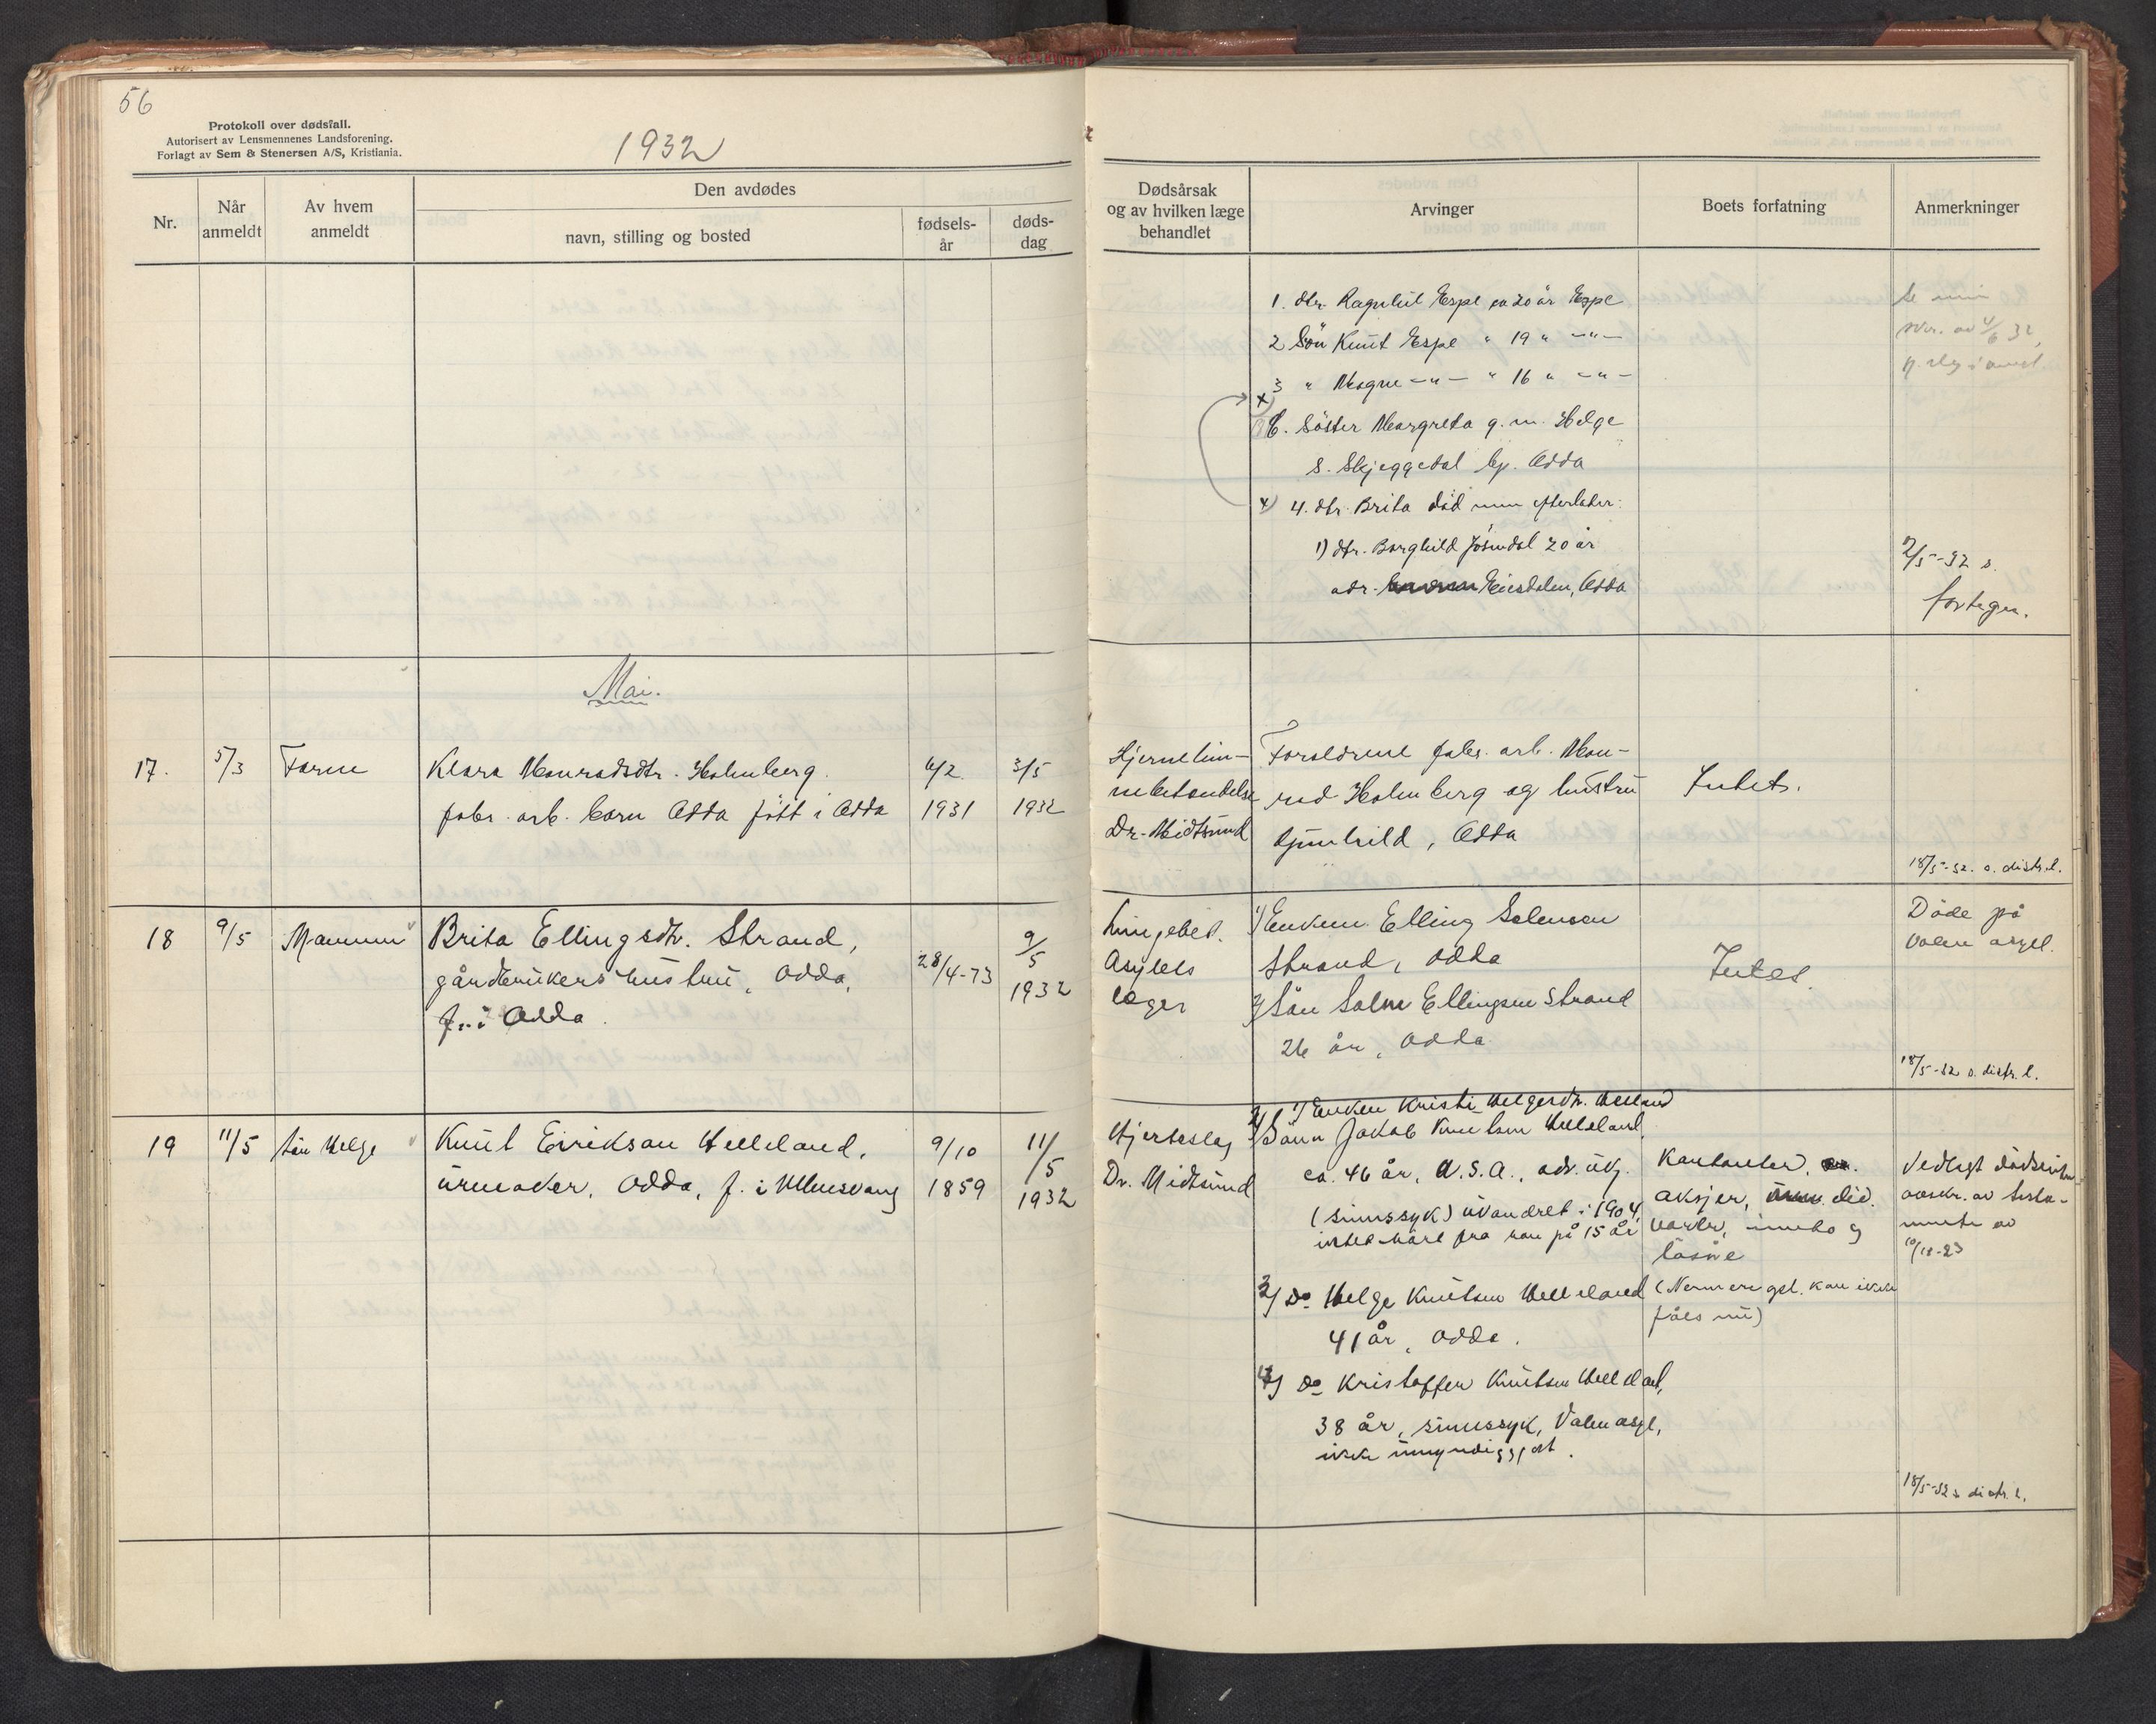 56
Protokoll over dødsfall.
Autorisert av Lensmennenes Landsforening.
Forlagt av Sem & Stenersen A/S, Kristiania.
1932
Nr.
Når anmeldt
Av hvem anmeldt
Den avdødes
navn, stilling og bosted
fødsels-
år
døds-
dag
Dødsårsak
og av hvilken læge
behandlet
Arvinger
Boets forfatning
Anmerkninger
1. dtr. Ragnhil Espe ca 20 år Espe
2 Sön Knut Espe " 19 " —"—
3 " Magne —"— " 16 " —"—
Söster Margreta g. m. Helge
S. Skjeggedal Odda
4. dtr. Brita död men efterlater:
1) dtr. Borghild Jösendal 20 år
adr. Odda
Mai.
17.
5/3
Klara Monradsdtr. Holmberg.
fabr. arb. barn Odda född i Odda
6/2
1931
3/5
1932
Dr. Midtsund
Foreldrene fabr. arb. Mon-
rad Holmberg og hustru
Gunhild, Odda
Intet.
18/5-32. s. distr. l.
18
9/5
Mannen
Brita Ellingsdtr. Strand,
gårdbrukers hustru, Odda,
f. i Odda
28/4-73
9/5
1932
Lungebet.
Asylets
læger
1) Enkem. Elling Solmson
Strand, Odda
2) Sön Salm Ellingsen Strand
26 år, Odda
Intet
Döde på
Valen asyl.
18/5-32 s. distr. l.
19
11/5
Sön Helge
Knut Eirikson Helleland,
urmaker, Odda, f. i Ullensvang
9/10
1859
11/5
1932
Hjerteslag
Dr. Midtsund
1) Enken Kristi Helgesdtr. Helland
2) Sönn Jakob Knutsen Helleland,
ca. 46 år, U.S.A., adr. ukj.
(sinnssyk) utvandret i 1904,
intet hört fra han på 15 år
3) Do Helge Knutsen Helleland
41 år, Odda.
4) Do Kristoffer Knutsen Helleland,
38 år, sinnssyk, Valen asyl,
ikke umyndiggjort.
Kontanter,
aksjer, div.
varer, innbo og
lösöre
(Nermere opl. kan ikke
fåes nu)
Vedlagt
avskr. av testa-
mente av
10/10-23
18/5-32 s. distr. l.